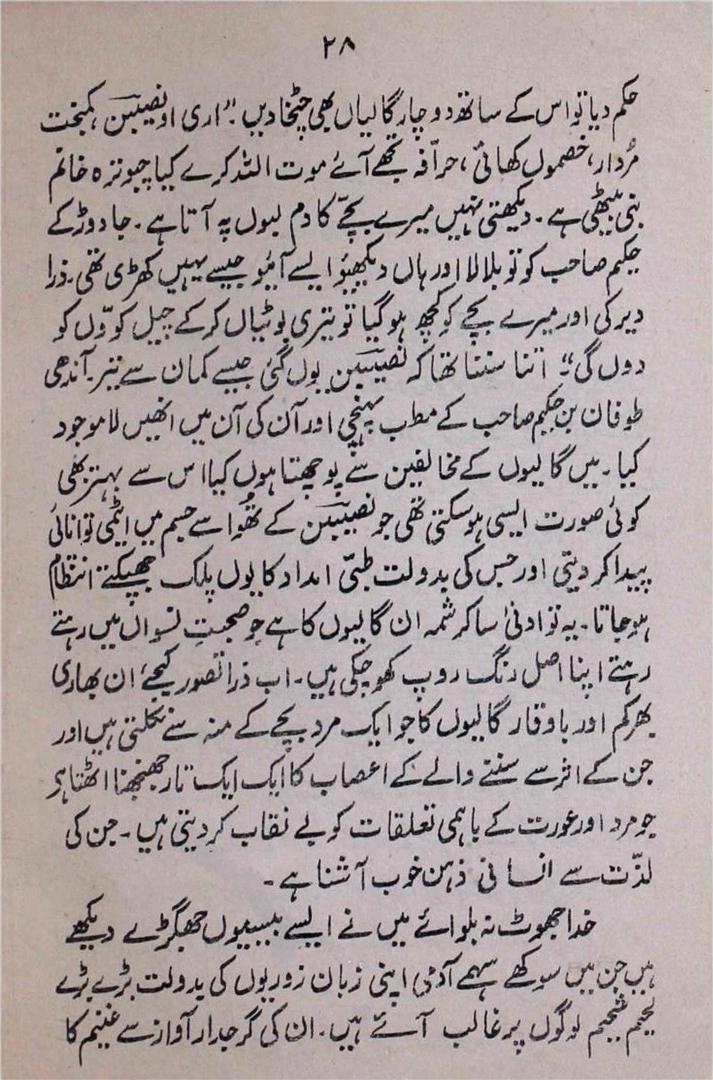 ۲۸
حکم دیا تو اس کے ساتھ دو چار گالیاں بھی چٹخا دیں۔ "اری او نصیبن، کمبخت
مُردار، خصموں کھائی، حرّافہ تجھے آئے موت اللہ کرے کیا چبوترہ خانم
بنی بیٹھی ہے۔ دیکھتی نہیں میرے بچّے کا دم لبوں پہ آتا ہے۔ جا دوڑ کے
حکیم صاحب کو تو بلا لا اور ہاں دیکھیو ایسے آئیو جیسے یہیں کھڑی تھی۔ ذرا
دیر کی اور میرے بچے کو کچھ ہو گیا تو تیری بوٹیاں کر کے چیل کوّوں کو
دوں گی" اتنا سننا تھا کہ نصیبن یوں گئی جیسے کمان سے تیر۔ آندھی
طوفان بن حکیم صاحب کے مطب پہنچی اور آن کی آن میں انھیں لا موجود
کیا۔ میں گالیوں کے مخالفین سے پوچھتا ہوں کیا اس سے بہتر بھی
کوئی صورت ایسی ہو سکتی تھی جو نصیبن کے تھُوا سے جسم میں ایٹمی توانائی
پیدا کر دیتی اور جس کی بدولت طبّی امداد کا یوں پلک جھپکتے انتظام
ہو جاتا۔ یہ تو ادنیٰ سا کرشمہ ان گالیوں کا ہے جو صحبتِ نسواں میں رہتے
رہتے اپنا اصل رنگ روپ کھو چکی ہیں۔ اب ذرا تصور کیجئے ان بھاری
بھرکم اور باوقار گالیوں کا جو ایک مرد بچے کے منہ سے نکلتی ہیں اور
جن کے اثر سے سننے والے کے اعصاب کا ایک ایک تار جھنجھنا اٹھتا ہے
جو مرد اور عورت کے باہمی تعلقات کو بے نقاب کر دیتی ہیں۔ جن کی
لذّت سے انسانی ذہن خوب آشنا ہے۔
خدا جھوٹ نہ بلوائے میں نے ایسے بیسیوں جھگڑے دیکھے
ہیں جن میں سوکھے سہمے آدمی اپنی زبان زوریوں کی بدولت بڑے بڑے
لحیم شحیم لوگوں پر غالب آئے ہیں۔ ان کی گرجدار آواز سے غنیم کا